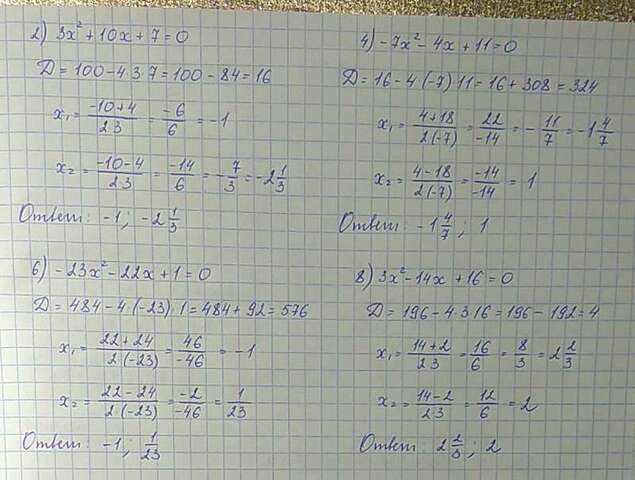 2) 3x² + 10x + 7 = 0
D = 100 - 4·3·7 = 100 - 84 = 16
x₁ = (-10+4)/(2·3) = -6/6 = -1
x₂ = (-10-4)/(2·3) = -14/6 = -7/3 = -2 1/3
Ответ: -1; -2 1/3
4) -7x² - 4x + 11 = 0
D = 16 - 4·(-7)·11 = 16 + 308 = 324
x₁ = (4+18)/(2·(-7)) = 22/-14 = -11/7 = -1 4/7
x₂ = (4-18)/(2·(-7)) = -14/-14 = 1
Ответ: -1 4/7; 1
6) -23x² - 22x + 1 = 0
D = 484 - 4·(-23)·1 = 484 + 92 = 576
x₁ = (22+24)/(2·(-23)) = 46/-46 = -1
x₂ = (22-24)/(2·(-23)) = -2/-46 = 1/23
Ответ: -1; 1/23
8) 3x² - 14x + 16 = 0
D = 196 - 4·3·16 = 196 - 192 = 4
x₁ = (14+2)/(2·3) = 16/6 = 8/3 = 2 2/3
x₂ = (14-2)/(2·3) = 12/6 = 2
Ответ: 2 2/3; 2